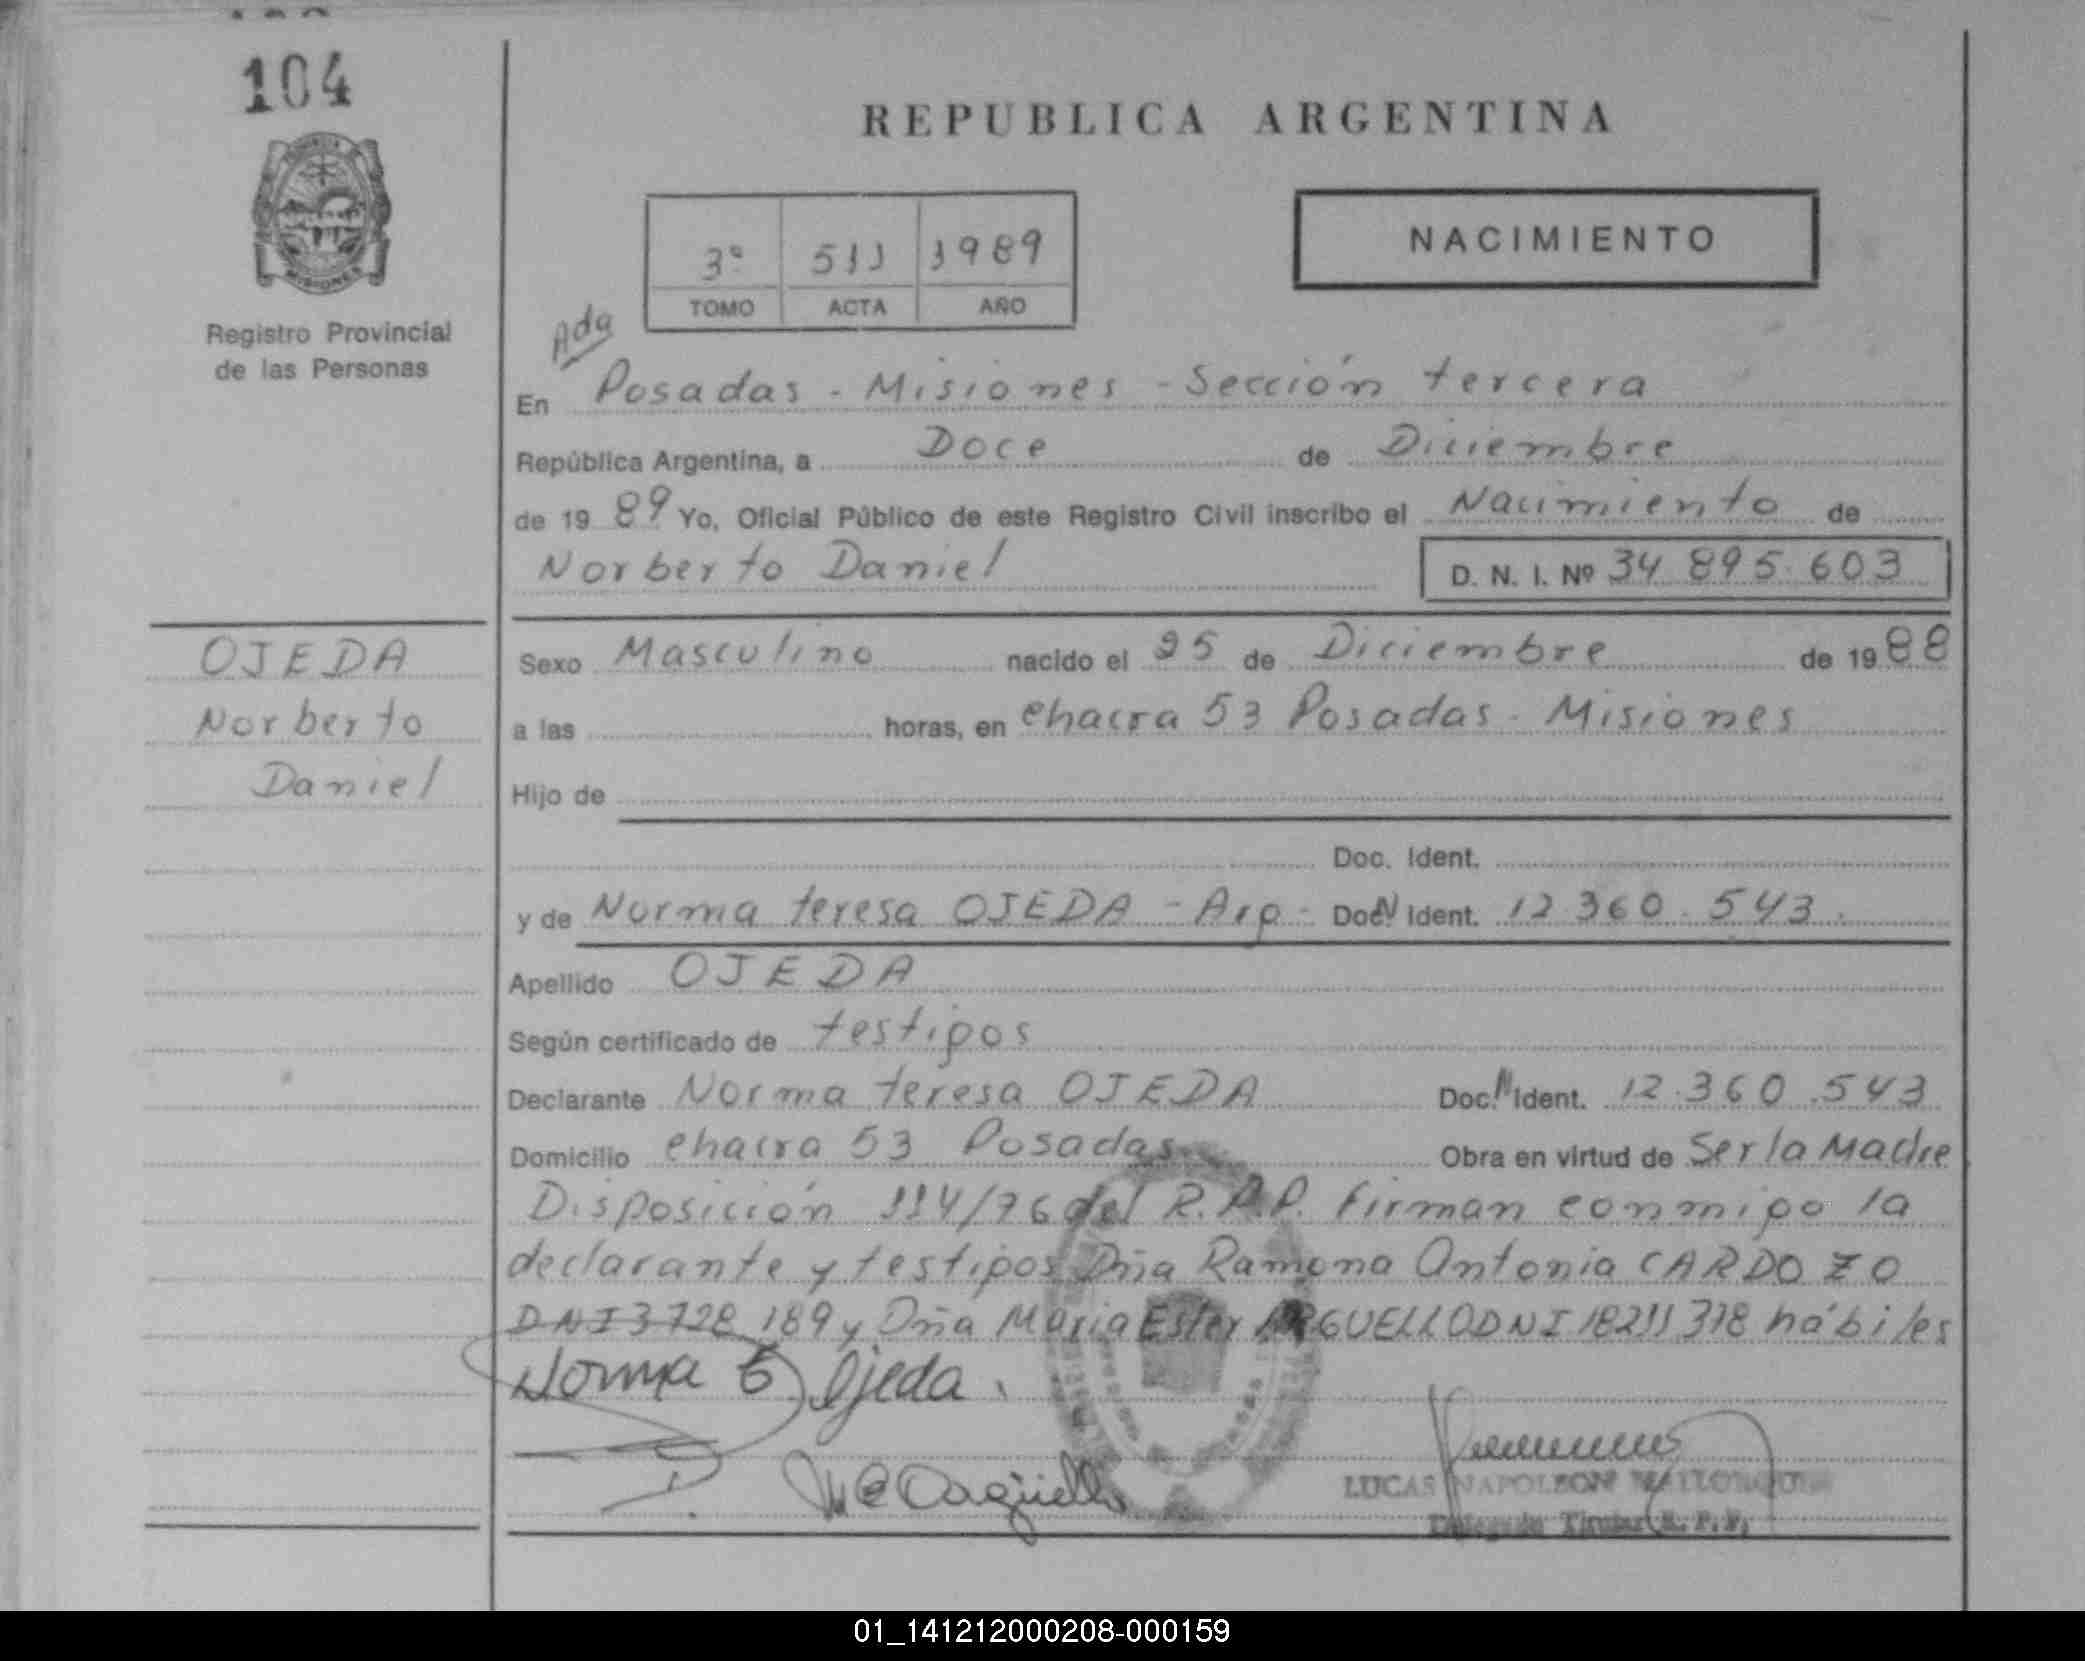 104
MISIONES
Registro Provincial
de las Personas
REPUBLICA ARGENTINA
3º 511 1989
TOMO ACTA AÑO
NACIMIENTO
Ada
En Posadas - Misiones - Sección tercera
República Argentina, a Doce de Diciembre
de 19 89 Yo, Oficial Público de este Registro Civil inscribo el Nacimiento de
Norberto Daniel D. N. I. Nº 34 895 603
OJEDA
Norberto
Daniel
Sexo Masculino nacido el 25 de Diciembre de 19 88
a las horas, en chacra 53 Posadas - Misiones
Hijo de
Doc. Ident.
y de Norma teresa OJEDA - Arg - Doc. Ident. 12 360 543.
Apellido OJEDA
Según certificado de testigos
Declarante Norma teresa OJEDA Doc. Ident. 12.360.543
Domicilio chacra 53 Posadas Obra en virtud de Ser la Madre
Disposición 114/76 del R.P.P. Firman conmigo la
declarante y testigos Dña Ramona Antonia CARDOZO
DNI 3 728 189 y Dña Maria Ester ARGUELLO DNI 18211 378 hábiles
Norma T Ojeda.
LUCAS NAPOLEON
Titular R. P. P.
01_141212000208-000159